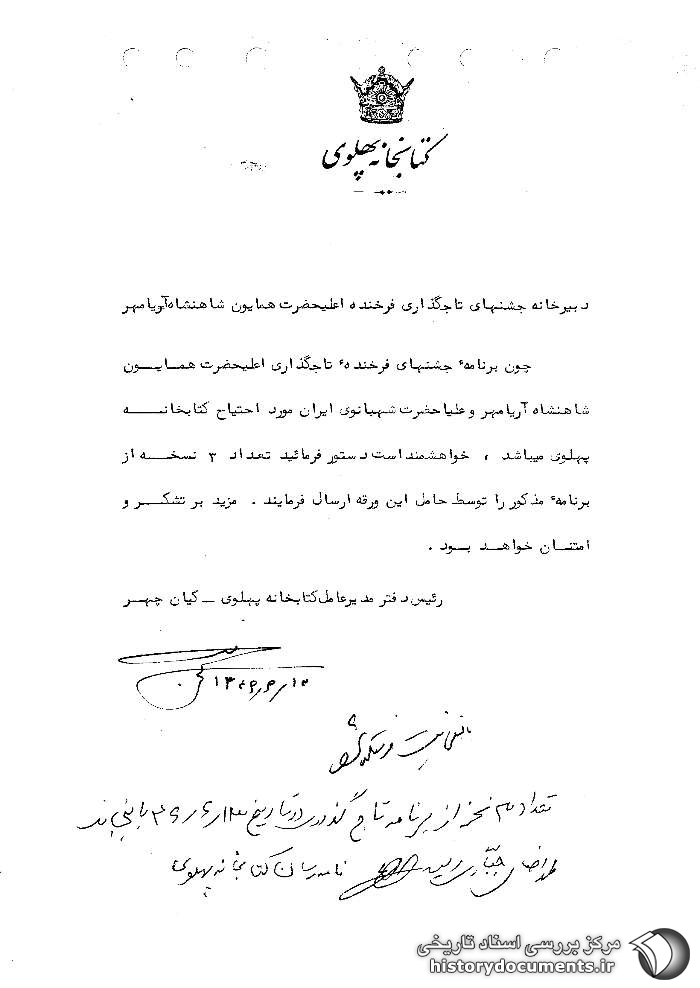 کتابخانه پهلوی
دبیرخانه جشنهای تاجگذاری فرخنده اعلیحضرت همایون شاهنشاه آریامهر
چون برنامهٔ جشنهای فرخندهٔ تاجگذاری اعلیحضرت همایون
شاهنشاه آریامهر و علیاحضرت شهبانوی ایران مورد احتیاج کتابخانه
پهلوی میباشد ، خواهشمند است دستور فرمائید تعداد ۳ نسخه از
برنامهٔ مذکور را توسط حامل این ورقه ارسال فرمایند . مزید بر تشکر و
امتنان خواهد بود .
رئیس دفتر مدیرعامل کتابخانه پهلوی ـ کیان چهر
تعداد نسخه از برنامه تاج گذاری در تاریخ
نامه رسان کتابخانه پهلوی
مرکز بررسی اسناد تاریخی
historydocuments.ir